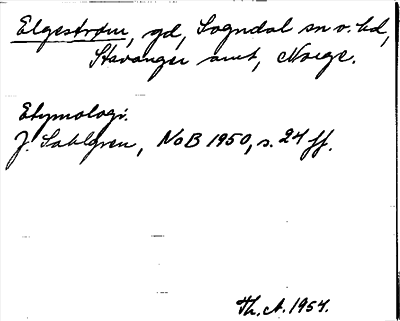 Elgestrøm, gd, Sogndal sn o. hd,
Stavanger amt, Norge.
Etymologi.
J. Sahlgren, NoB 1950, s. 24 ff.
Th. A. 1954.